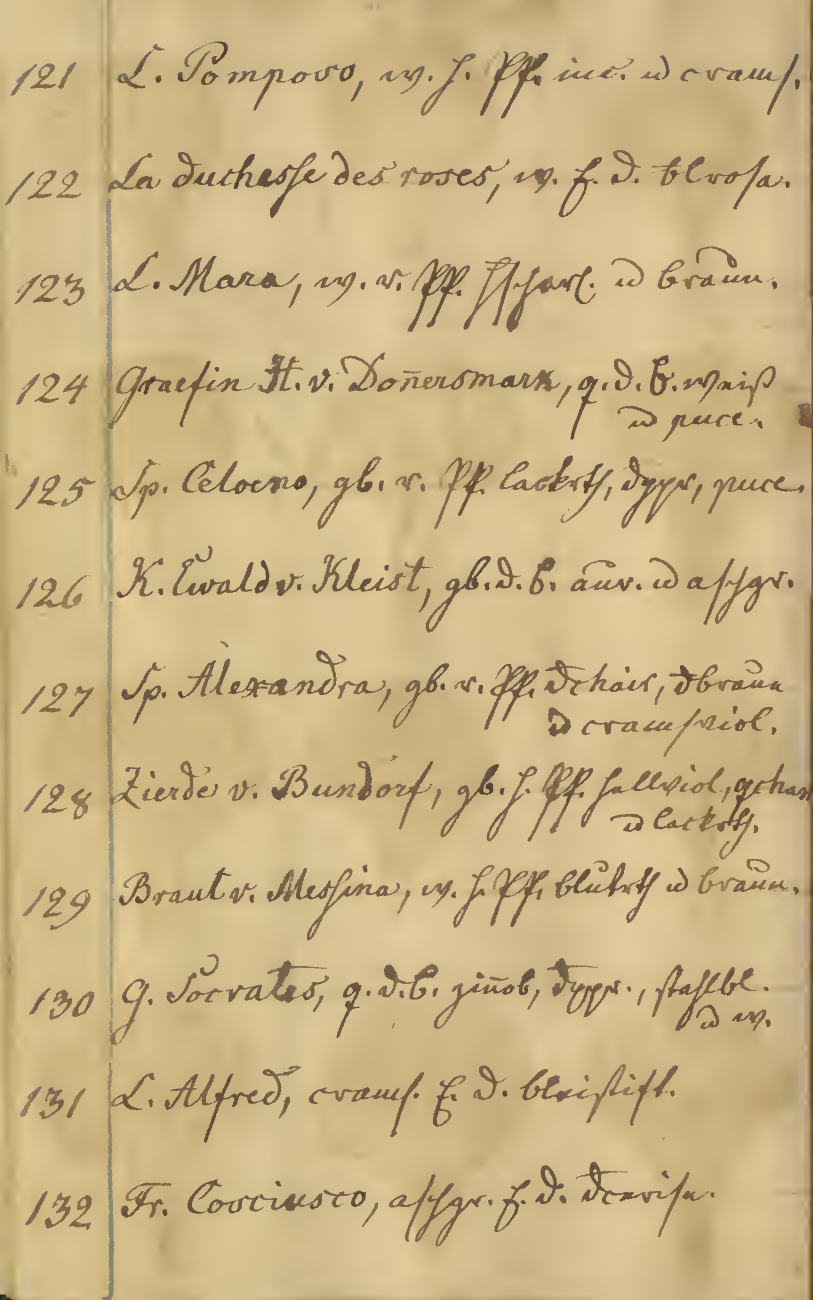 121 L. Pomposo, w. h. PP. inc. u crams.
122 La duchesse des roses, w. f. d. blrosa.
123 L. Mara, w. r. PP. hscharl. u braun.
124 Graefin H. v. Doñersmark, q. d. b. weiß
u puce.
125 Sp. Céloeno, gb. r. PP. lackrth, dppr, puce.
126 K. Ewald v. Kleist, gb. d. b. aur. u aschgr.
127 Sp. Alexandra, gb. r. PP. dchair, dbraun
u cramsviol.
128 Zierde v. Bundorf, gb. h. PP. hellviol,
u lackrth.
129 Braut v. Messina, w. h. PP. blutrth u braun.
130 G. Socrates, q. d. b. zin̄ob, dppr., stahlbl.
u w.
131 L. Alfred, crams. f. d. bleistift.
132 Fr. Cosciusco, aschgr. f. d. dcerise.